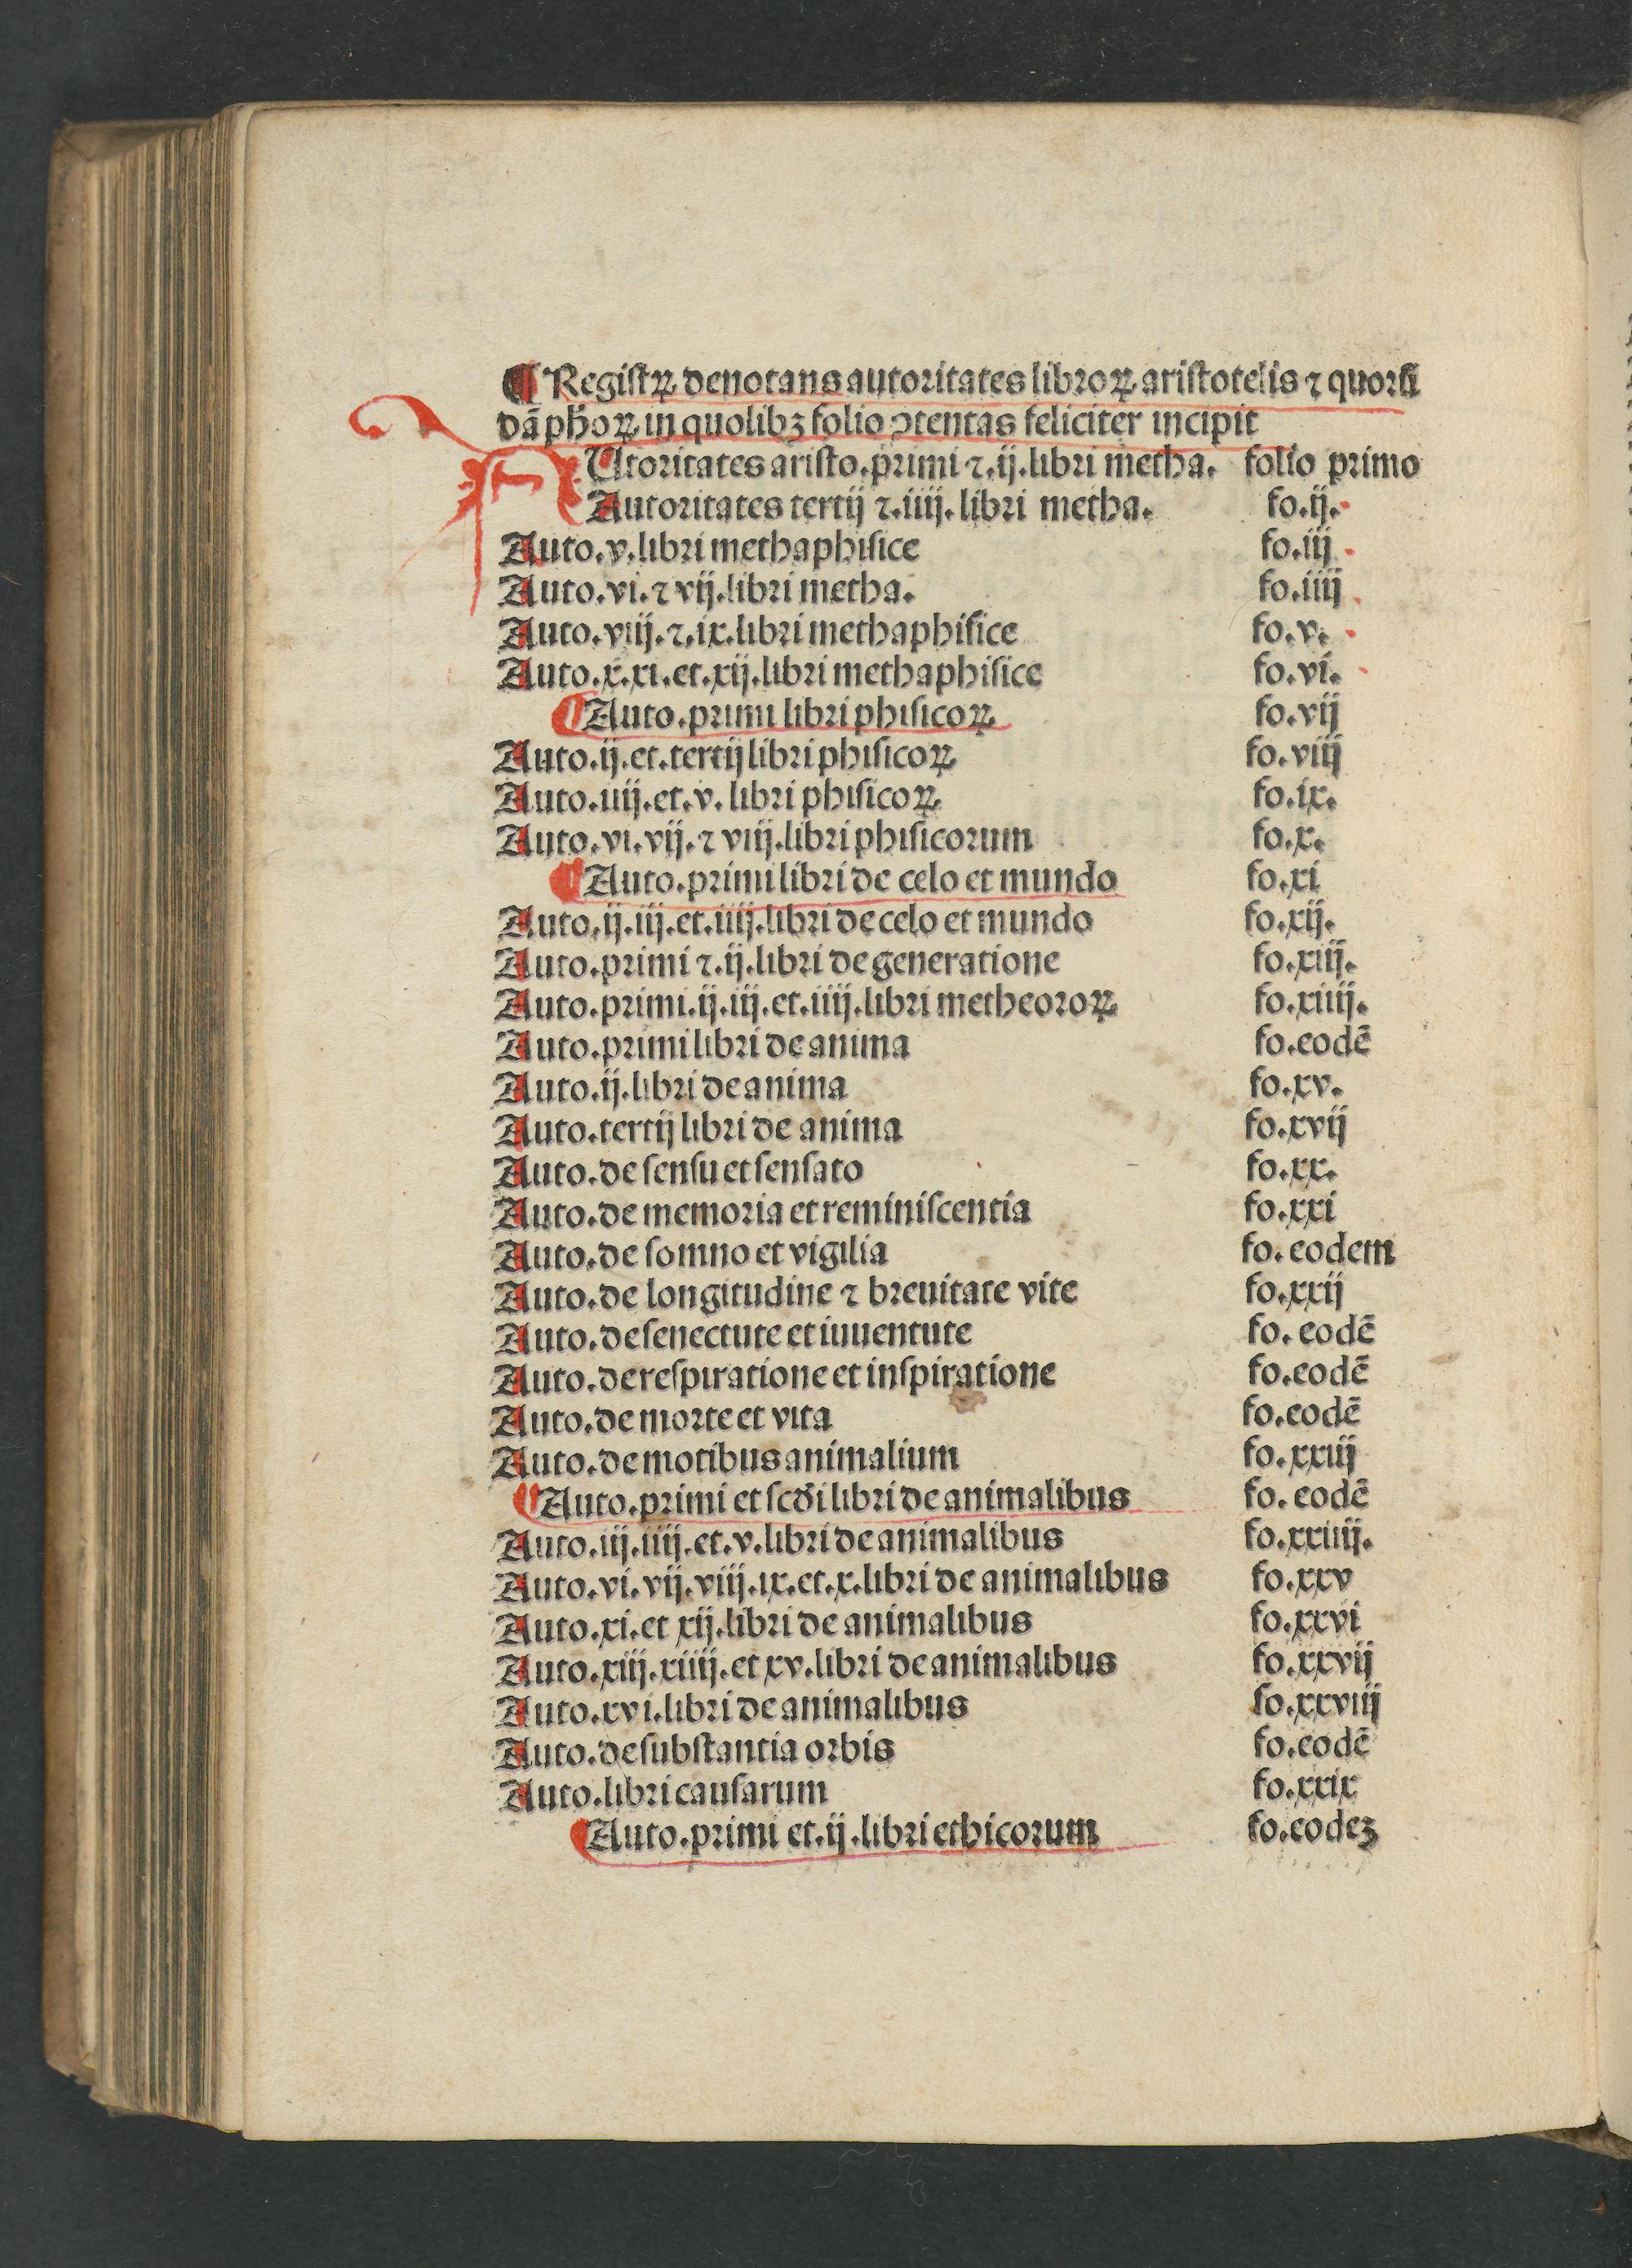 ¶ Regiſtꝝ denotans autoritates libroꝝ ariſtotelis ⁊ quorū
dā ph̄oꝝ in quolibꝫ folio ↄtentas feliciter incipit
AUtoritates ariſto.primi ⁊.ij.libri metha. folio primo
Autoritates tertij ⁊.iiij.libri metha. fo.ij.
Auto.v.libri methaphiſice fo.iij
Auto.vi.⁊ vij.libri metha. fo.iiij
Auto.viij.⁊.ix.libri methaphiſice fo.v.
Auto.x.xi.et.xij.libri methaphiſice fo.vi.
¶ Auto.primi libri phiſicoꝝ fo.vij
Auto.ij.et.tertij libri phiſicoꝝ fo.viij
Auto.iiij.et.v.libri phiſicoꝝ fo.ix.
Auto.vi.vij.⁊ viij.libri phiſicorum fo.x.
¶ Auto.primi libri de celo et mundo fo.xi
Auto.ij.iij.et.iiij.libri de celo et mundo fo.xij.
Auto.primi ⁊.ij.libri de generatione fo.xiij.
Auto.primi.ij.iij.et.iiij.libri metheoroꝝ fo.xiiij.
Auto.primi libri de anima fo.eodē
Auto.ij.libri de anima fo.xv.
Auto.tertij libri de anima fo.xvij
Auto.de ſenſu et ſenſato fo.xx.
Auto.de memoria et reminiſcentia fo.xxi
Auto.de ſomno et vigilia fo.eodem
Auto.de longitudine ⁊ breuitate vite fo.xxij
Auto.de ſenectute et iuuentute fo.eodē
Auto.de reſpiratione et inſpiratione fo.eodē
Auto.de morte et vita fo.eodē
Auto.de motibus animalium fo.xxiij
¶ Auto.primi et ſcd̄i libri de animalibus fo.eodē
Auto.iij.iiij.et.v.libri de animalibus fo.xxiiij.
Auto.vi.vij.viij.ix.et.x.libri de animalibus fo.xxv
Auto.xi.et xij.libri de animalibus fo.xxvi
Auto.xiij.xiiij.et xv.libri de animalibus fo.xxvij
Auto.xvi.libri de animalibus ſo.xxviij
Auto.de ſubſtantia orbis fo.eodē
Auto.libri cauſarum fo.xxix
¶ Auto.primi et.ij.libri ethicorum fo.eodeꝫ